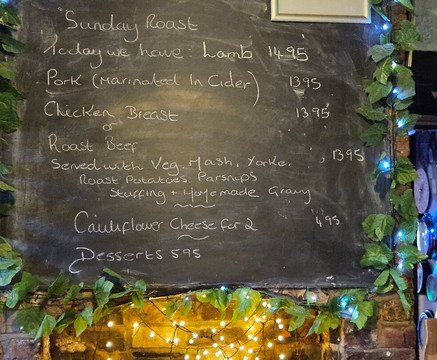 Sunday Roast
Today we have: Lamb 14.95
Pork (Marinated In Cider) 1395
Chicken Breast 13.95
or
Roast Beef 1395
Served with Veg, Mash, Yorke,
Roast Potatoes, Parsnips
Stuffing + Homemade Gravy
Cauliflower Cheese for 2 4.95
Desserts 5.95